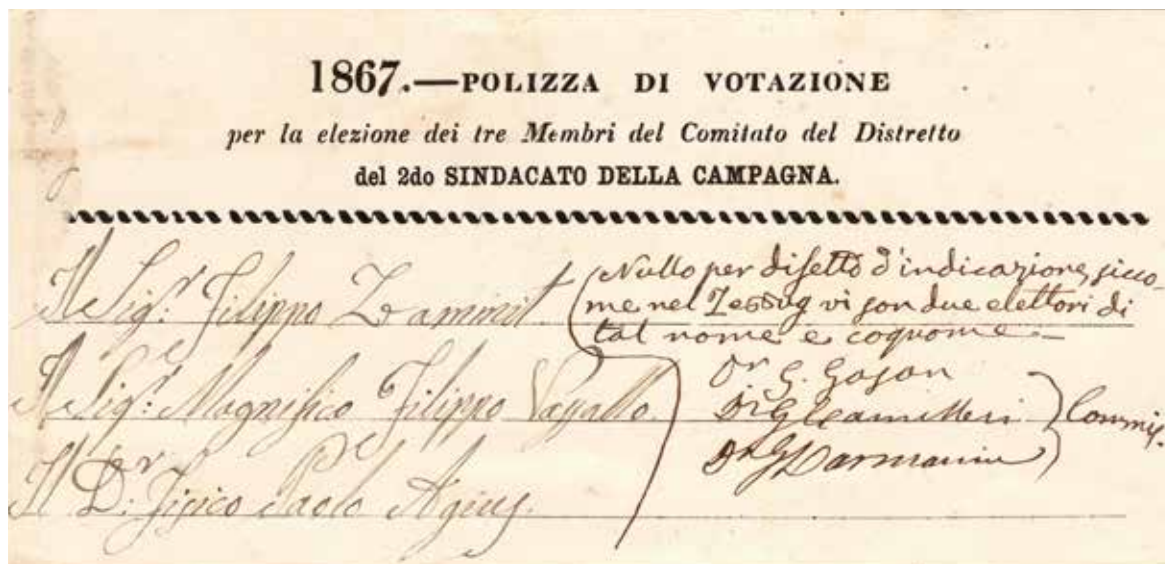 1867.—POLIZZA DI VOTAZIONE
per la elezione dei tre Membri del Comitato del Distretto
del 2do SINDACATO DELLA CAMPAGNA.
Il Sigr. Filippo Zammit.
Il Sigr. Magnifico Filippo Vassallo.
Il Dr. Fisico Paolo Agius.
(Nullo per difetto d'indicazione, sicco-
me nel Zebbug vi son due elettori di
tal nome e cognome.—
Dr G.
Dr G
Dr G
Commis.